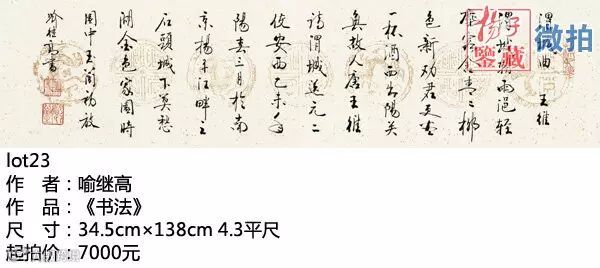 渭城曲 王維
渭城朝雨浥轻
塵客舍青々柳
色新劝君更尽
一杯酒西出陽关
無故人唐王維
詩渭城送元二
使安西乙未年
陽春三月於南
京揚子江畔之
石頭城下莫愁
湖金色家園時
園中玉蘭初放
喻继高書
揚子鑒藏
微拍
lot23
作 者：喻继高
作 品：《书法》
尺 寸：34.5cm×138cm 4.3平尺
起拍价：7000元